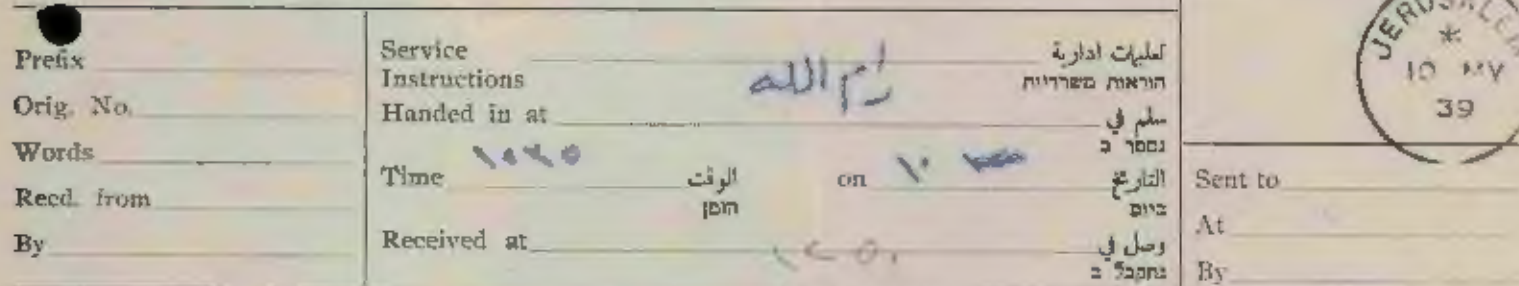 Prefix
Orig. No.
Words
Recd. from
By
Service Instructions
تعليمات ادارية
הוראות משרדיות
رام الله
Handed in at
سلم في
נמסר ב
Time
الوقت
הזמן
on ١٠
التاريخ
ביום
Received at ١٢٥٠
وصل في
נתקבל ב
JERUSALEM
*
10 MY
39
Sent to
At
By